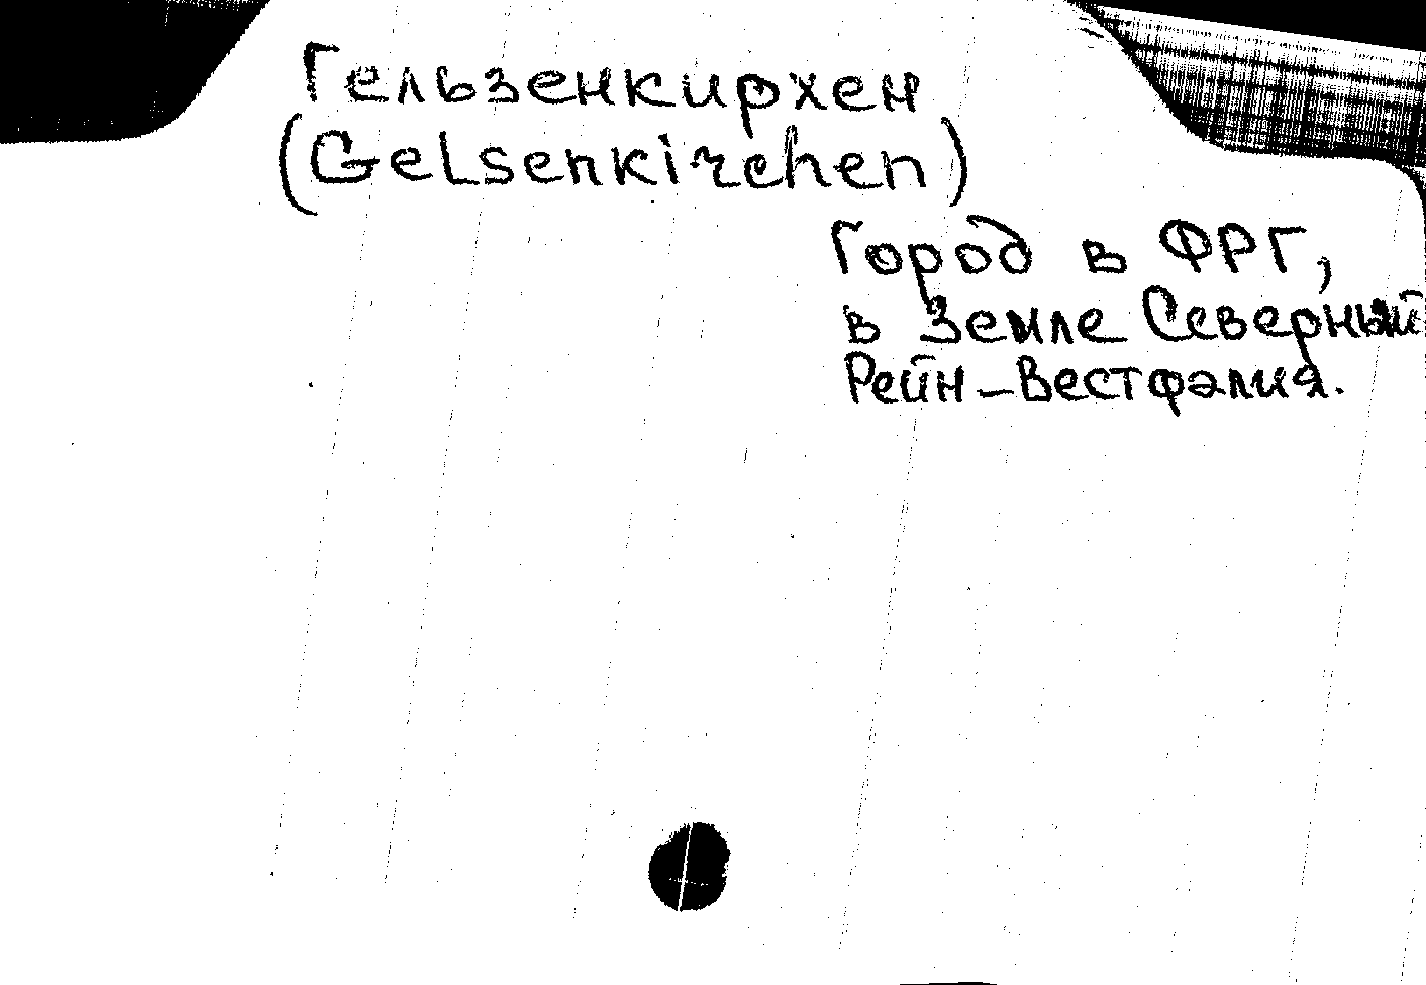 Гельзенкирхен
(Gelsenkirchen)
Город в ФРГ,
в Земле Северный
Рейн-Вестфалия.